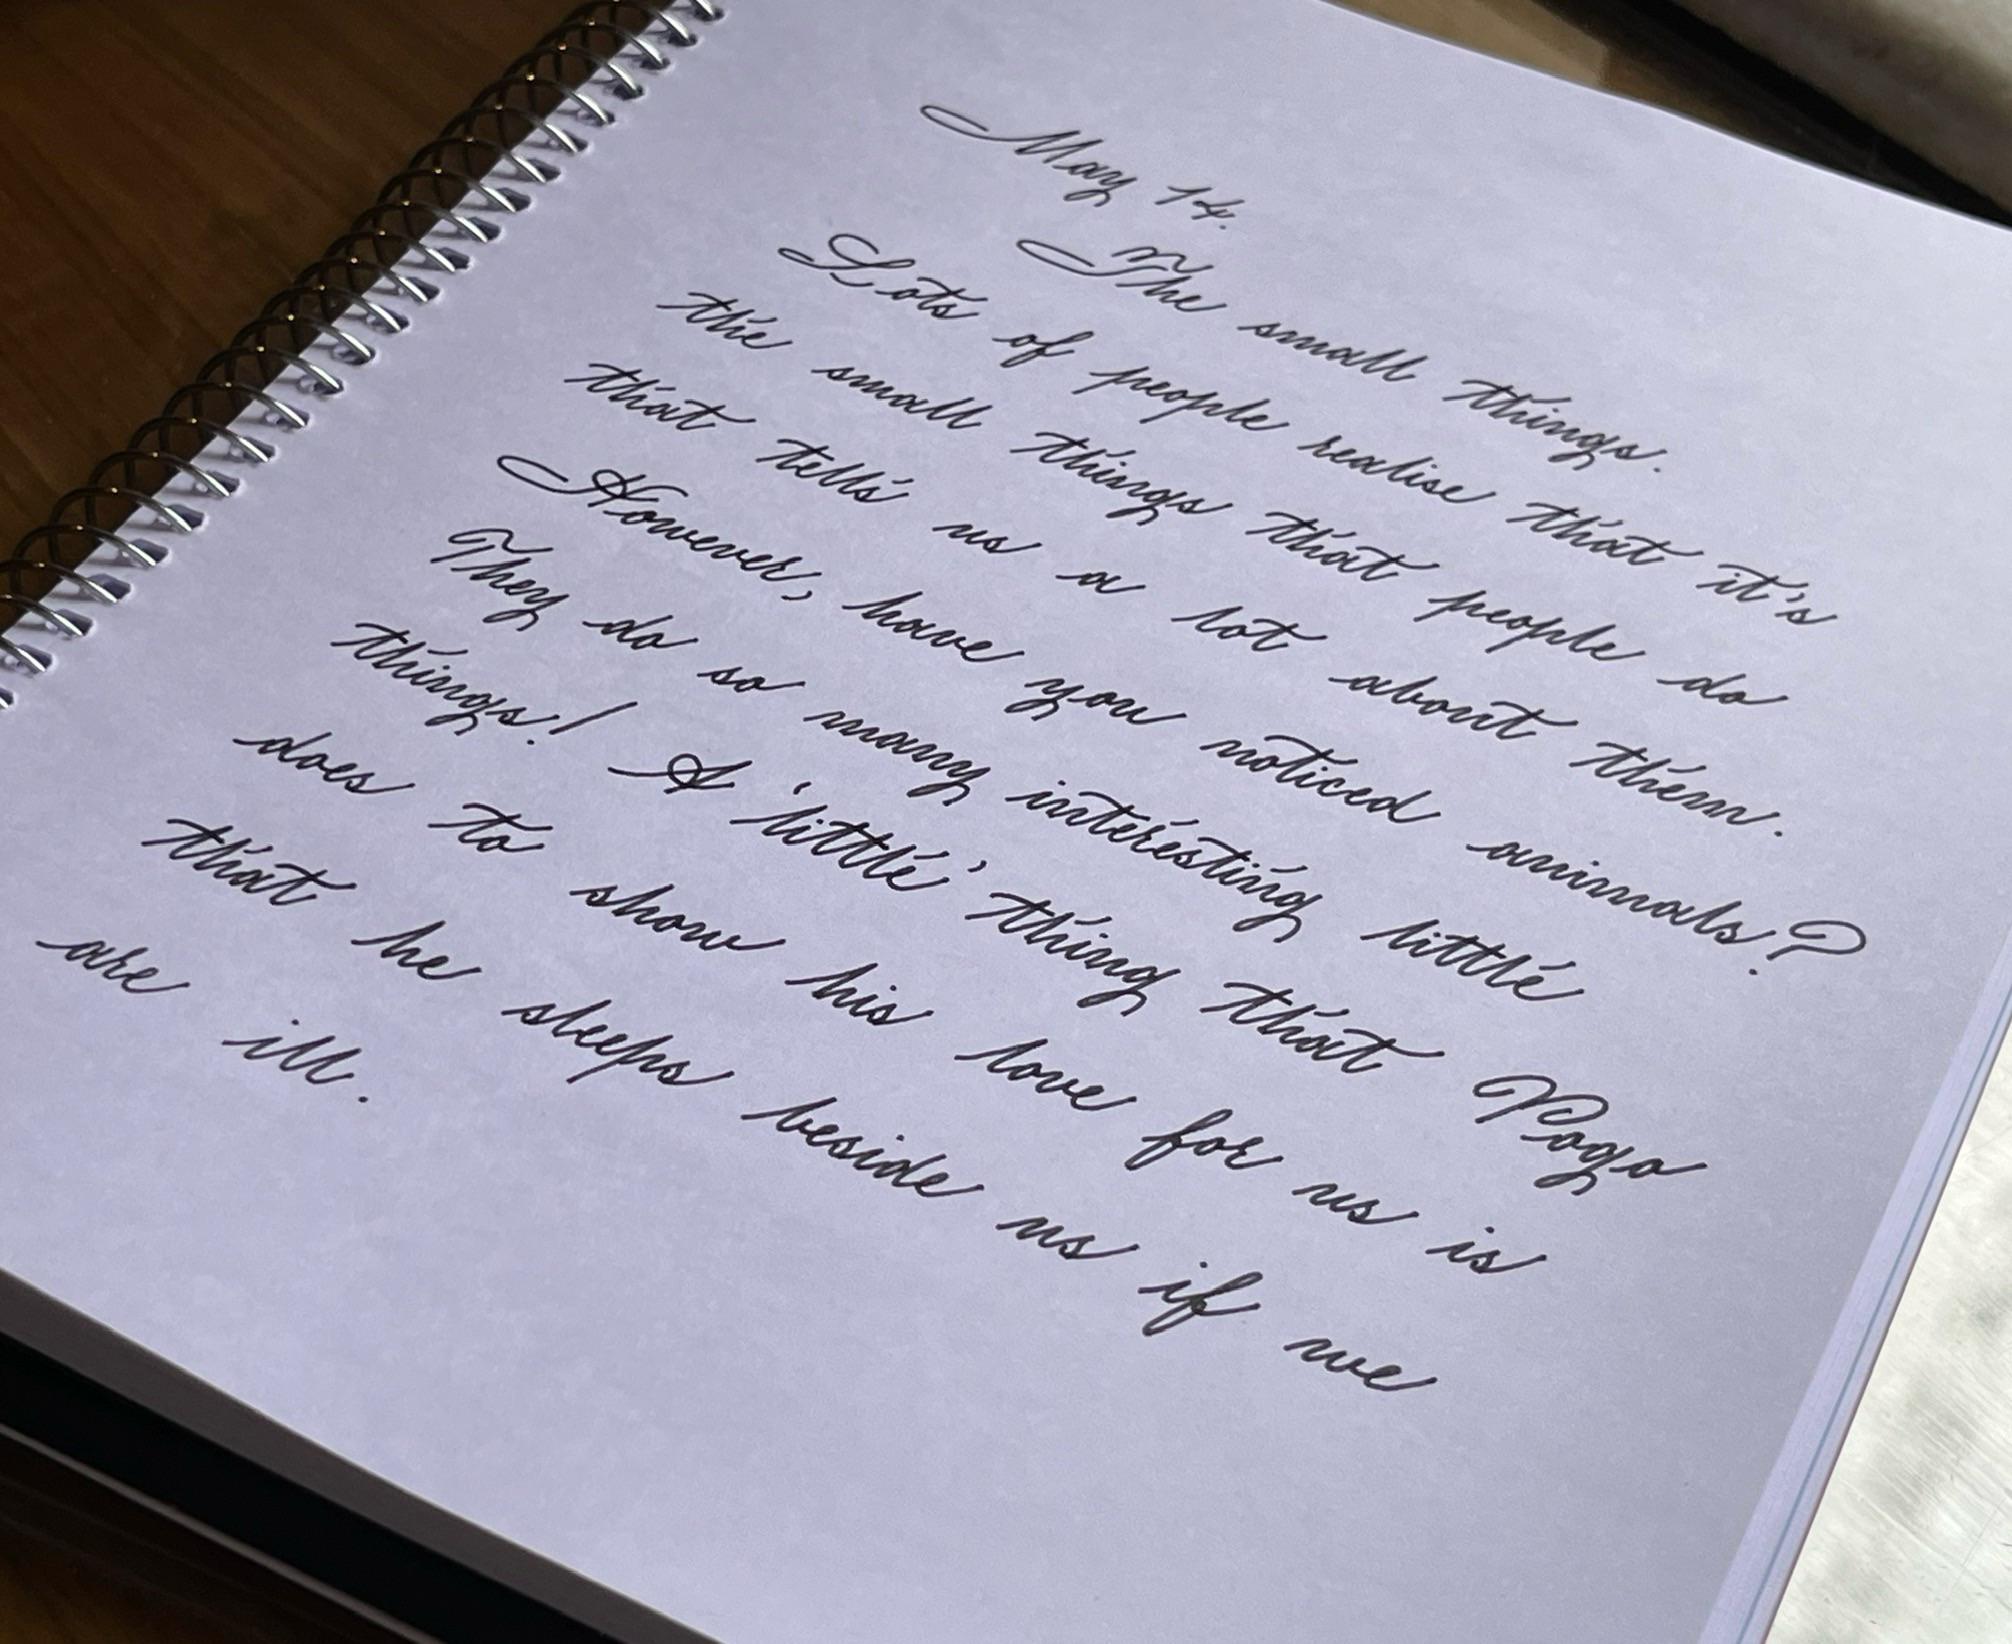 May 14.
The small things.
Lots of people realise that it's
the small things that people do
that tells us a lot about them.
However, have you noticed animals?
They do so many interesting little
things! A 'little' thing that Pogo
does to show his love for us is
that he sleeps beside us if we
are ill.